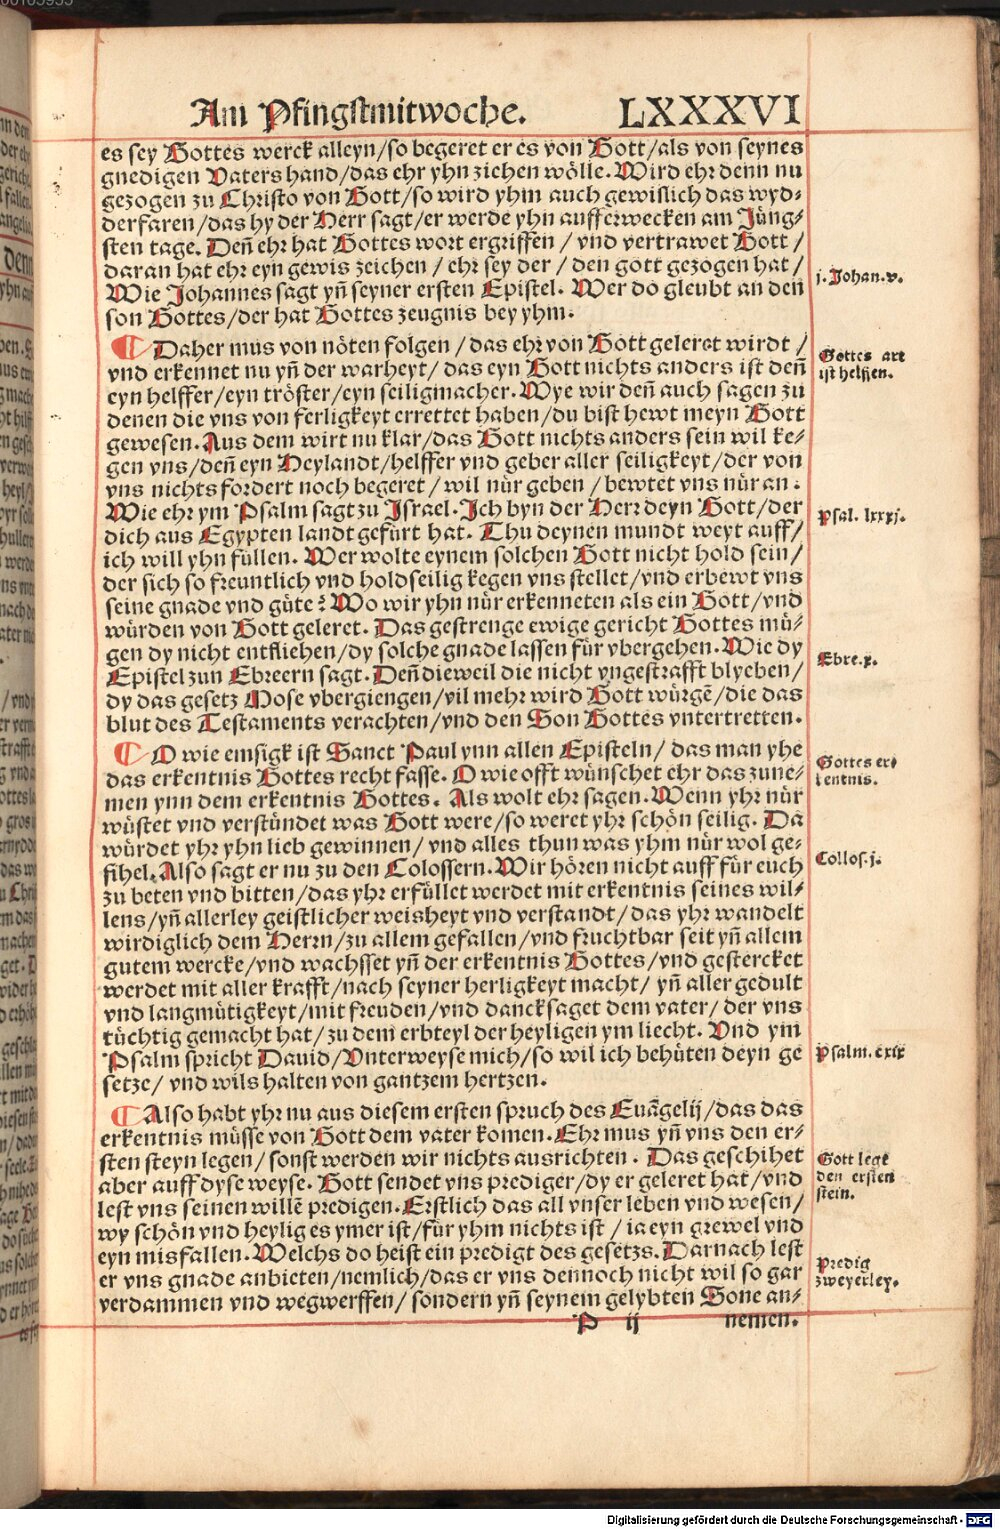 Am Pfingstmitwoche. LXXXVI
es sey Gottes werck alleyn/so begeret er es von Gott/als von seynes
gnedigen Vaters hand/das ehr yhn ziehen wölle. Wird ehr denn nu
gezogen zu Christo von Gott/so wird yhm auch gewislich das wyd-
derfaren/das hy der Herr sagt/er werde yhn aufferwecken am Jüng-
sten tage. Den̄ ehr hat Gottes wort ergriffen/vnd vertrawet Gott/
daran hat ehr eyn gewis zeichen/ehr sey der/den gott gezogen hat/
Wie Johannes sagt yn̄ seyner ersten Epistel. Wer do gleubt an den
son Gottes/der hat Gottes zeugnis bey yhm.
j. Johan. v.
¶ Daher mus von nöten folgen/das ehr von Gott geleret wirdt/
vnd erkennet nu yn̄ der warheyt/das eyn Gott nichts anders ist den̄
eyn helffer/eyn tröster/eyn seiligmacher. Wye wir den̄ auch sagen zu
denen die vns von ferligkeyt errettet haben/du bist hewt meyn Gott
gewesen. Aus dem wirt nu klar/das Gott nichts anders sein wil ke-
gen vns/den̄ eyn Heylandt/helffer vnd geber aller seiligkeyt/der von
vns nichts fordert noch begeret/wil nür geben/bewtet vns nür an.
Wie ehr ym Psalm sagt zu Israel. Ich byn der Herr deyn Gott/der
dich aus Egypten landt gefürt hat. Thu deynen mundt weyt auff/
ich will yhn füllen. Wer wolte eynem solchen Gott nicht hold sein/
der sich so freuntlich vnd holdseilig kegen vns stellet/vnd erbewt vns
seine gnade vnd güte? Wo wir yhn nür erkenneten als ein Gott/vnd
würden von Gott geleret. Das gestrenge ewige gericht Gottes mü-
gen dy nicht entfliehen/dy solche gnade lassen für vbergehen. Wie dy
Epistel zun Ebreern sagt. Den̄ dieweil die nicht vngestrafft blyeben/
dy das gesetz Mose vbergiengen/vil mehr wird Gott würgē/die das
blut des Testaments verachten/vnd den Son Gottes vntertretten.
Gottes art
ist helffen.
Psal. lxxxj.
Ebre. x.
¶ O wie emsigk ist Sanct Paul ynn allen Episteln/das man yhe
das erkentnis Gottes recht fasse. O wie offt wünschet ehr das zune-
men ynn dem erkentnis Gottes. Als wolt ehr sagen. Wenn yhr nür
wüstet vnd verstündet was Gott were/so weret yhr schön seilig. Da
würdet yhr yhn lieb gewinnen/vnd alles thun was yhm nür wol ge-
fihel. Also sagt er nu zu den Colossern. Wir hören nicht auff für euch
zu beten vnd bitten/das yhr erfüllet werdet mit erkentnis seines wil-
lens/yn̄ allerley geistlicher weisheyt vnd verstandt/das yhr wandelt
wirdiglich dem Herrn/zu allem gefallen/vnd fruchtbar seit yn̄ allem
gutem wercke/vnd wachsset yn̄ der erkentnis Gottes/vnd gestercket
werdet mit aller krafft/nach seyner herligkeyt macht/yn̄ aller gedult
vnd langmütigkeyt/mit freuden/vnd dancksaget dem vater/der vns
tüchtig gemacht hat/zu dem erbteyl der heyligen ym liecht. Vnd ym
Psalm spricht Dauid/Vnterweyse mich/so wil ich behüten deyn ge
setze/vnd wils halten von gantzem hertzen.
Gottes er-
kentnis.
Collos. j.
Psalm. cxix
¶ Also habt yhr nu aus diesem ersten spruch des Euāgelij/das das
erkentnis müsse von Gott dem vater komen. Ehr mus yn̄ vns den er-
sten steyn legen/sonst werden wir nichts ausrichten. Das geschihet
aber auff dyse weyse. Gott sendet vns prediger/dy er geleret hat/vnd
lest vns seinen willē predigen. Erstlich das all vnser leben vnd wesen/
wy schön vnd heylig es ymer ist/für yhm nichts ist/ia eyn grewel vnd
eyn misfallen. Welchs do heist ein predigt des gesetzs. Darnach lest
er vns gnade anbieten/nemlich/das er vns dennoch nicht wil so gar
verdammen vnd wegwerffen/sondern yn̄ seynem gelybten Sone an-
Gott legt
den ersten
stein.
Predig
zweyerley.
P ij nemen.
Digitalisierung gefördert durch die Deutsche Forschungsgemeinschaft - DFG